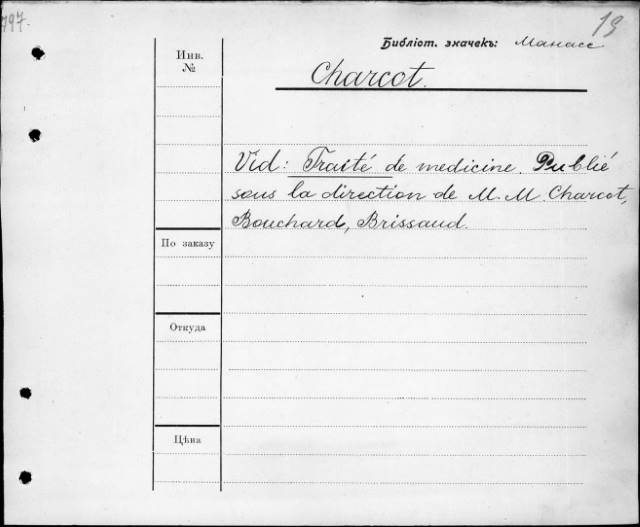 797.
19
Библіот. значекъ: Манасс
Инв.
№
Charcot.
Vid: Traité de medicine. Publié
sous la direction de M. M. Charcot,
Bouchard, Brissaud.
По заказу
Откуда
Цѣна